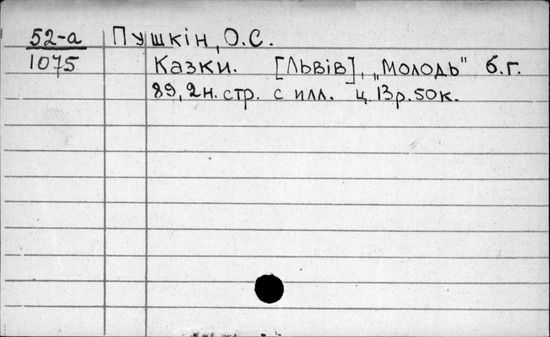 52-а Пушкін, О.С.
1075 Казки. [Львів], „Молодь" б.г.
89, 2н. стр. с илл. ц. 13р. 50к.